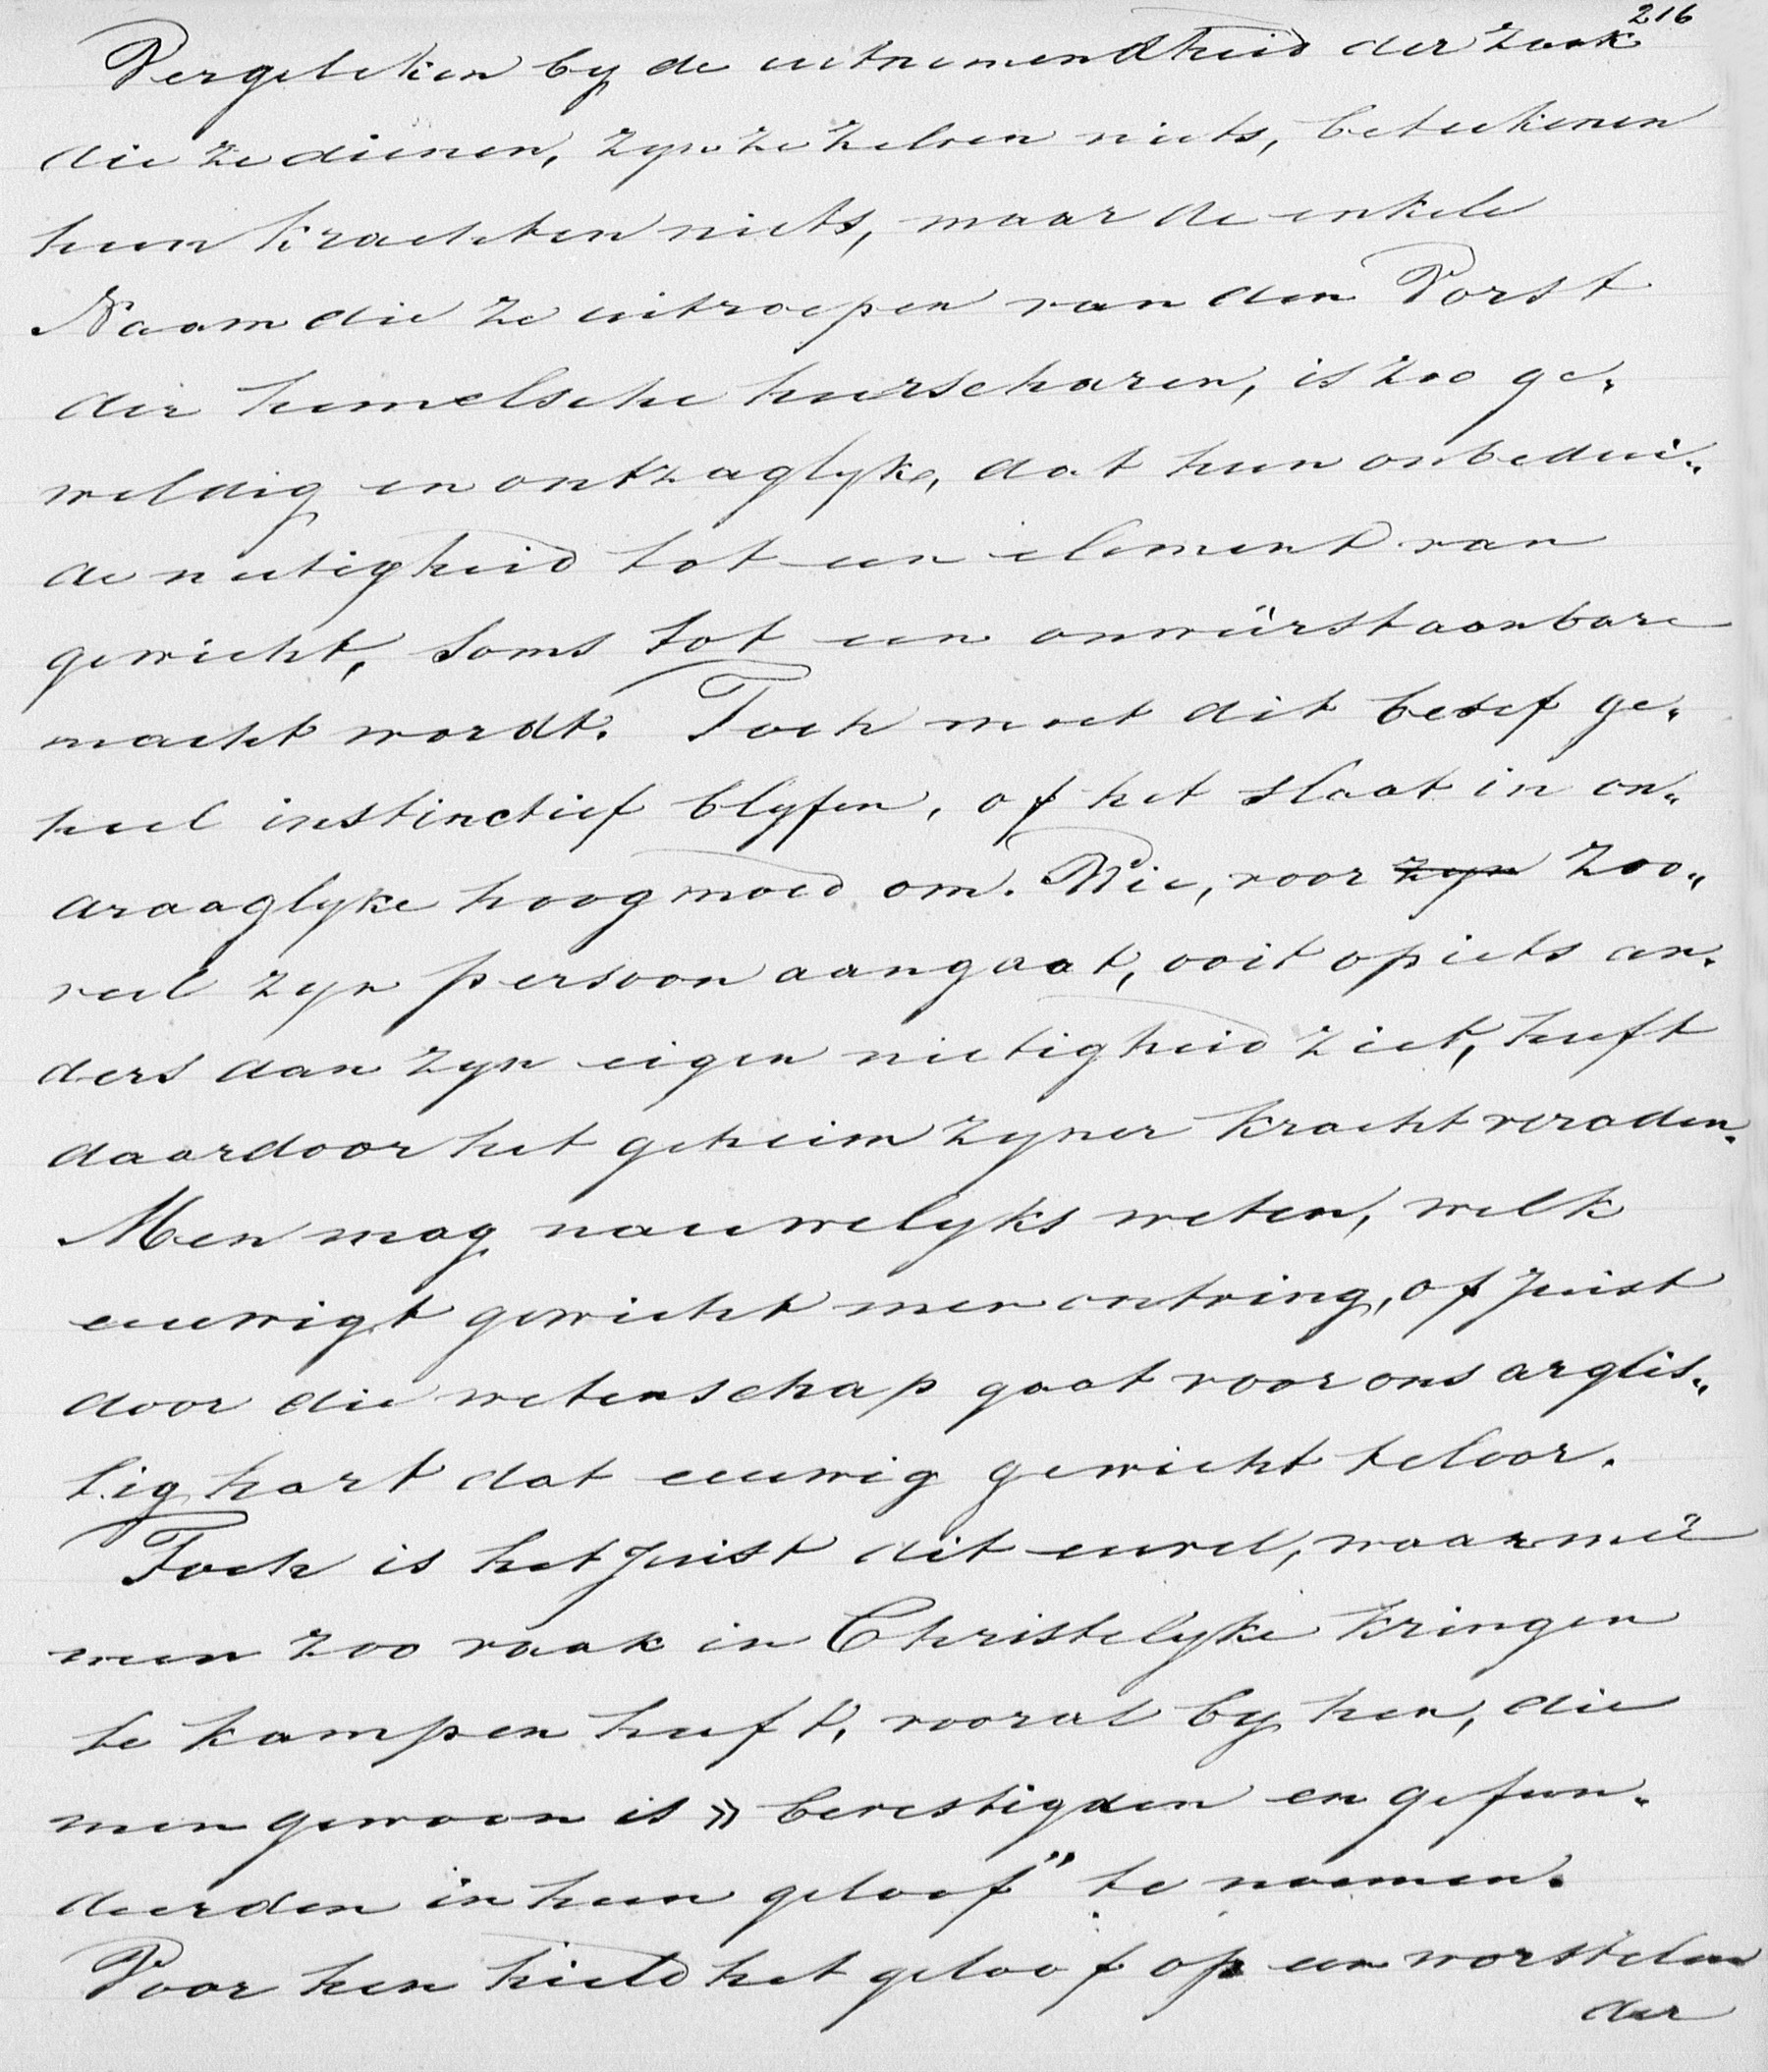 216
Vergeleken by de uitnemendheid der zaak
die ze dienen, zyn ze zelven niets, beteekenen
hun krachten niets, maar de enkele
Naam die ze uitroepen van den Vorst
der hemelsche heirscharen, is zoo ge„
weldig en ontzaglyk, dat hun onbedui„
de nietigheid tot een element van
gewicht, soms tot een onweêrstaanbare
macht wordt. Toch moet dit besef ge„
heel instinctief blyfen, of het slaat in on„
draaglyke hoogmoed om. Wie, voor zyn zoo„
veel zyn persoon aangaat, ooit op iets an„
ders dan zyn eigen nietigheid ziet, heeft
daardoor het geheim zyner kracht verraden.
Men mag nauwelyks weten, welk
eeuwigt gewicht men ontving, of juist
door die wetenschap gaat voor ons arglis„
tig hart dat eeuwig gewicht teloor.
Toch is het juist dit euvel, waarmeê
men zoo vaak in Christelyke kringen
te kampen heeft, vooral by hen, die
men gewoon is » bevestigden en gefun„
deerden in hun geloof" te noemen.
Voor hen hield het geloof op een worstelen
der